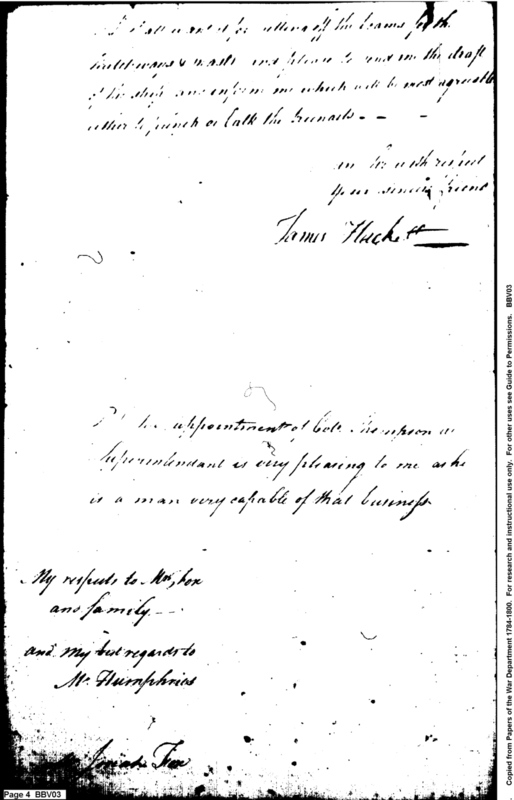 I shall want it for letting off the beams for the
& masts and please to send me the draft
of the ship and inform me which will be most agreeable
either to or Calk the - - -
am Sir with respect
your sincere friend
James Hackett
PS the appointment of Colo. Thompson as
Superintendant is very pleasing to me as he
is a man very capable of that business
My respects to Mrs. fox
and family —
and my best regards to
Mr. Humphries
Josiah Fox
Page 4 BBV03
Copied from Papers of the War Department 1784-1800. For research and instructional use only. For other uses see Guide to Permissions. BBV03